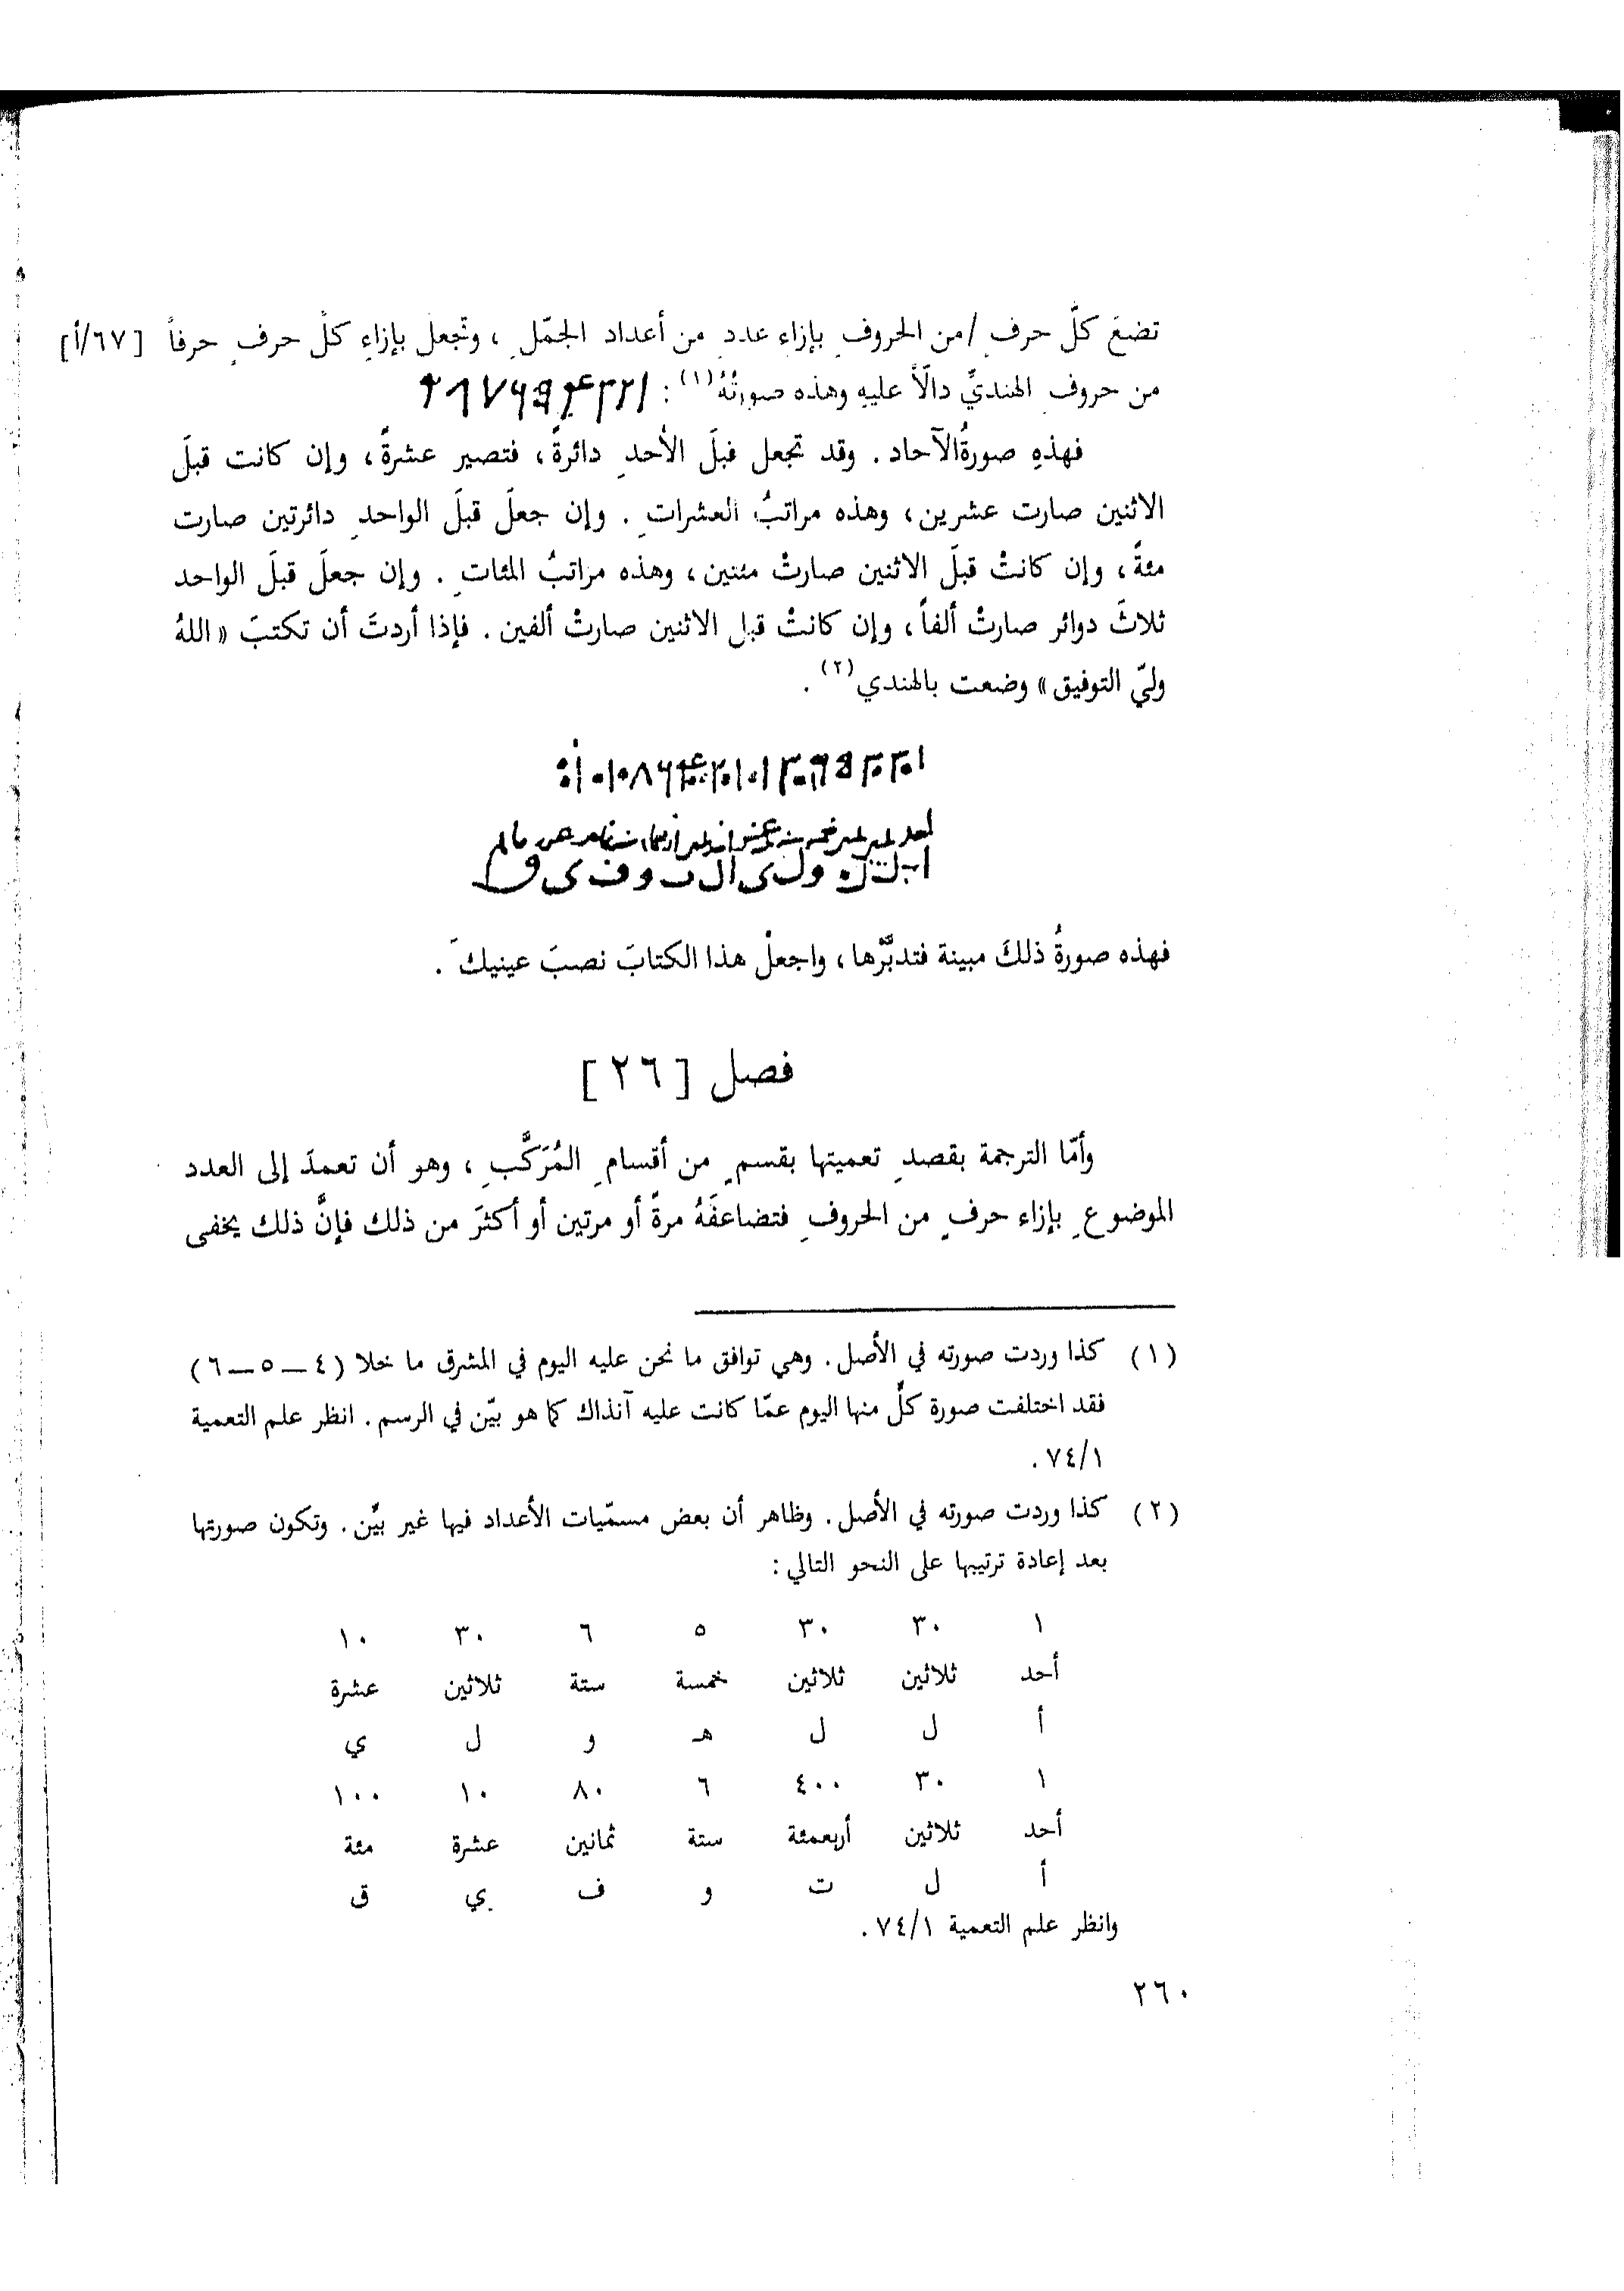 تضعَ كلَّ حرفٍ /من الحروفِ بإزاء عددٍ من أعداد الجمّلِ ، وتجعلَ بإزاءِ كلِّ حرفٍ حرفاً [٦٧/أ]
من حروفِ الهنديِّ دالّاً عليهِ وهذه صورتُهُ(١) :
فهذهِ صورةُ الآحاد . وقد تجعل قبلَ الأحدِ دائرةً ، فتصير عشرةً ، وإن كانت قبلَ
الاثنين صارت عشرين ، وهذه مراتبُ العشراتِ . وإن جعلَ قبلَ الواحدِ دائرتين صارت
مئةً ، وإن كانتْ قبلَ الاثنين صارتْ مئنين ، وهذه مراتبُ المئاتِ . وإن جعلَ قبلَ الواحد
ثلاثَ دوائر صارتْ ألفاً ، وإن كانتْ قبل الاثنين صارتْ ألفين . فإذا أردتَ أن تكتبَ « اللهُ
وليّ التوفيق » وضعت بالهندي(٢) .
فهذه صورةُ ذلكَ مبينة فتدبَّرها ، واجعلْ هذا الكتابَ نصبَ عينيكَ .
فصل [ ٢٦ ]
وأمّا الترجمة بقصدِ تعميتها بقسمٍ من أقسامِ المُرَكَّبِ ، وهو أن تعمدَ إلى العدد
الموضوعِ بإزاء حرفٍ من الحروفِ فتضاعفَهُ مرةً أو مرتين أو أكثرَ من ذلك فإنَّ ذلك يخفى
(١) كذا وردت صورته في الأصل . وهي توافق ما نحن عليه اليوم في المشرق ما خلا (٤ – ٥ – ٦)
فقد اختلفت صورة كلٍّ منها اليوم عمّا كانت عليه آنذاك كما هو بيّن في الرسم . انظر علم التعمية
٧٤/١ .
(٢) كذا وردت صورته في الأصل . وظاهر أن بعض مسمّيات الأعداد فيها غير بيِّن . وتكون صورتها
بعد إعادة ترتيبها على النحو التالي :
١ ٣٠ ٣٠ ٥ ٦ ٣٠ ١٠
أحد ثلاثين ثلاثين خمسة ستة ثلاثين عشرة
أ ل ل هـ و ل ي
١ ٣٠ ٤٠٠ ٦ ٨٠ ١٠ ١٠٠
أحد ثلاثين أربعمئة ستة ثمانين عشرة مئة
أ ل ت و ف ي ق
وانظر علم التعمية ٧٤/١ .
٢٦٠